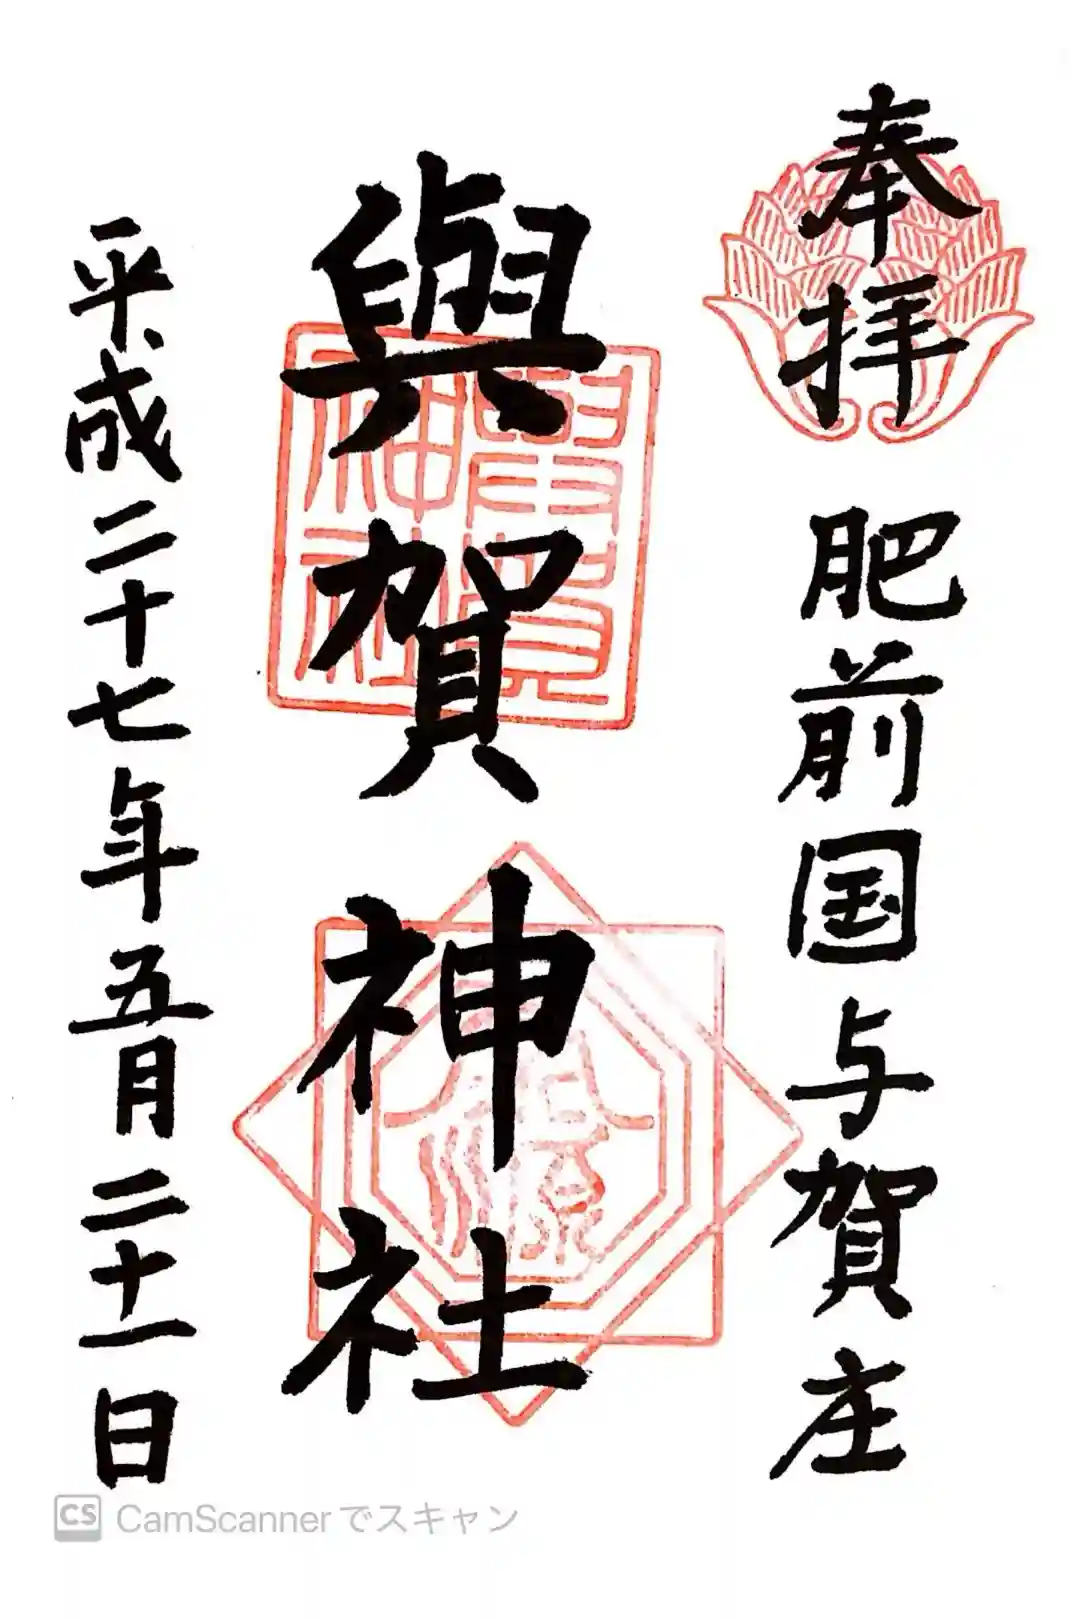 奉拝 肥前国与賀庄
與賀神社
平成二十七年五月二十一日
CS CamScannerでスキャン